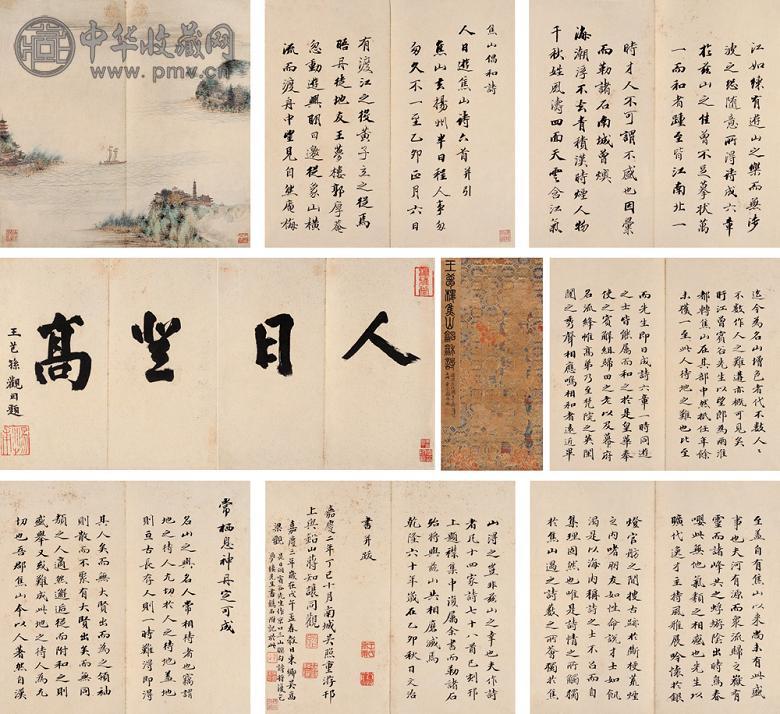 中华收藏网
www.pmv.cn
焦山倡和詩
人日遊焦山詩六首 并引
焦山去揚州半日程人事匆
匆久不一至乙卯正月六日
有渡江之役黄子立之從焉
晤丹徒地友王夢樓郭厚菴
忽動遊興朝日邀從象山橫
流而渡舟中望見自然庵梅
江如練有遊山之樂而無涉
波之恐隨意所得詩成六章
於兹山之佳曾不足摹狀萬
一而和者踵至皆江南北一
時才人不可謂不盛也因彙
而勒諸石南城曾燠
海潮浮不去青積漢時煙人物
千秋姓風濤四面天雲含江氣
人日登高
王芑孫觀同題
迄今為名山增色者代不數人人
不數作人之難遘亦概可見矣
盱江曾賓谷先生以望郎為兩淮
都轉焦山在其部中然抵任年餘
未獲一至此人待地之難也比至
而先生即日成詩六章一時同遊
之士皆能屬而和之於是皇華奉
使之賓解組歸田之老以及幕府
名流絳帷高弟乃至梵院之英閨
閣之秀聲相應鳴相和者遠近畢
常栖息神丹定可成
名山之與名人常相待者也竊謂
地之待人尤切於人之待地蓋地
則亘古長存人則一時難得即得
其人矣而無大賢出而為之領袖
則散而不聚有大賢出矣而無同
類之人適然邂逅從而附和之則
盛舉又或難成此地之待人為尤
切也吾鄉焦山今以人著然自漢
山得之豈非兹山之幸也夫作詩
者凡十四家詩七十八首已刻邗
上題襟集中復屬余書而勒諸石
殆將與兹山共相磨滅焉
乾隆六十年歲在乙卯秋日文治
書并跋
嘉慶二年丁巳小月南城吳照重游邗
上與鉛山蔣知讓同觀
嘉慶三年歲在戊午孟春穀日東鄉吳嵩
梁觀
至蓋自有焦山以來未有此盛
事也夫河有源而眾流歸之嶽有
靈而諸峰共之蜉蝣陰出時鳥春
嚶此無他氣類之相感也先生以
曠代逸才主持風雅展吟懐於銀
燈官舫之間搜古跡於斷梗荒煙
之內嗜朋友如性命說才士如飢
渴是以海內稱詩之士不召而自
集理固然也唯是詩情之所觸獨
於焦山遇之詩數之所奢獨於焦